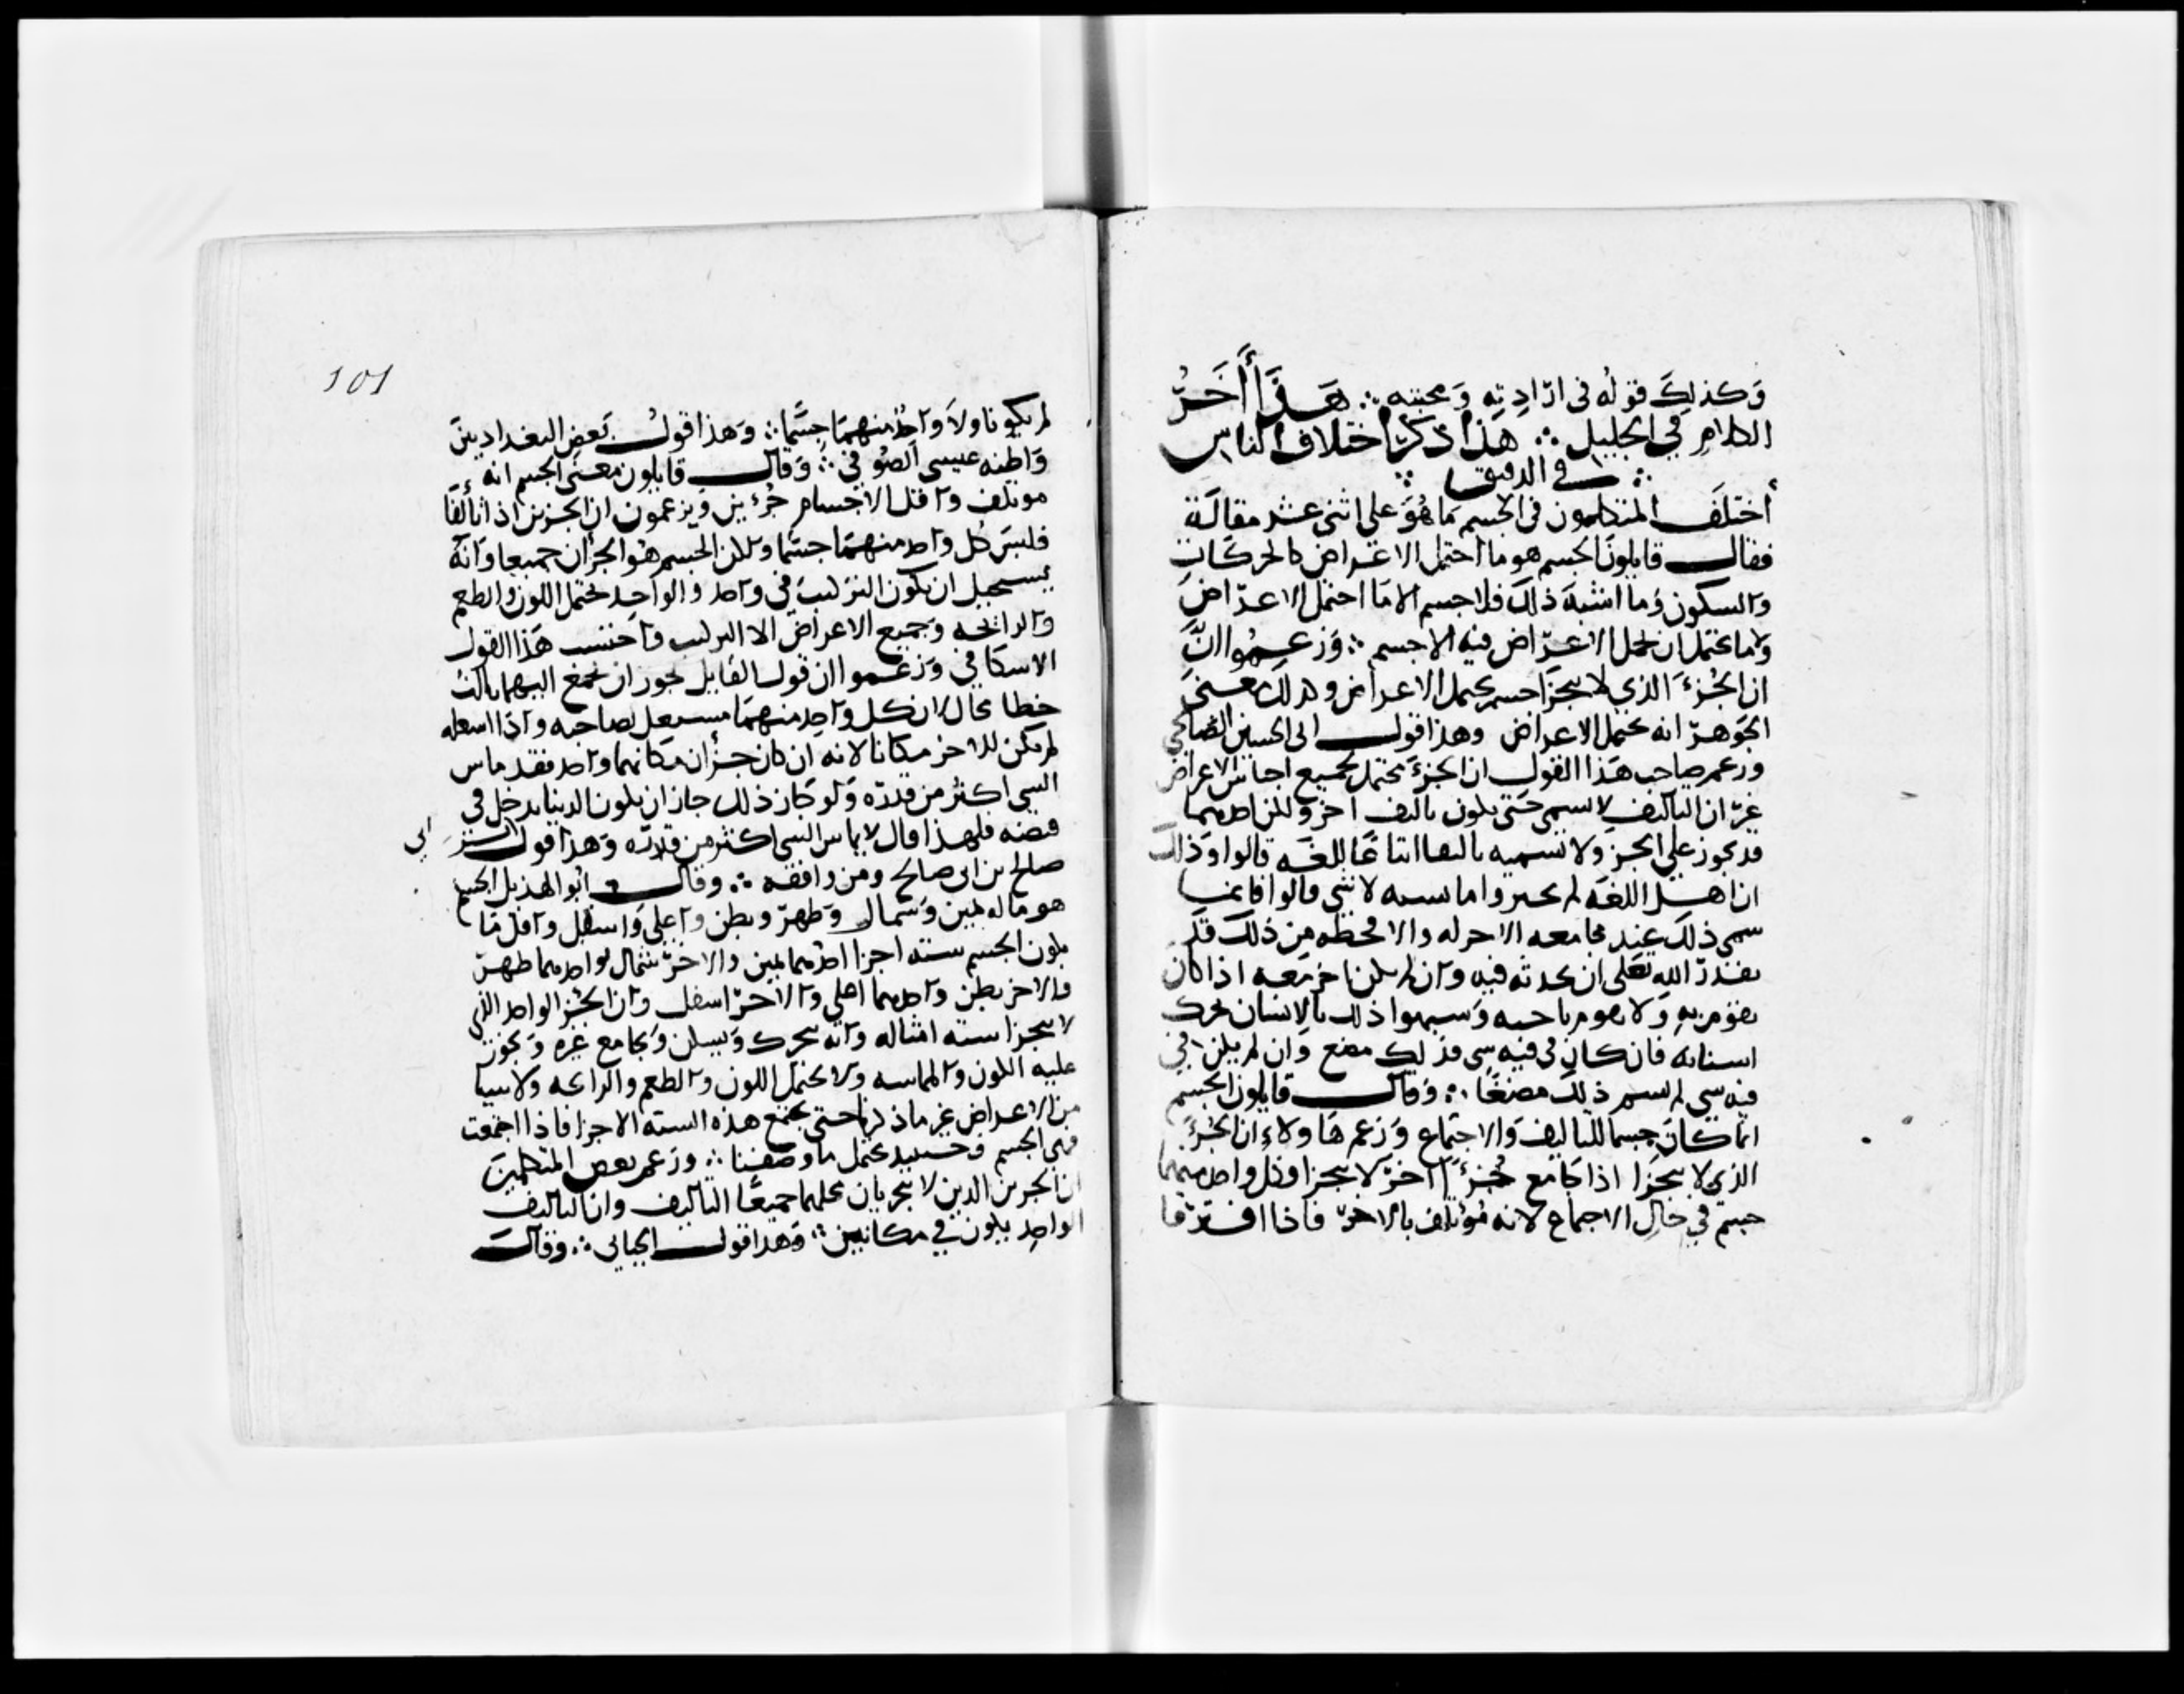 وكذلك قوله في ارادته ومحبته ∴ هذا أخر
الكلام في الجليل ∴ هذا ذكر اختلاف الناس
∴ في الدقيق ∴
أختلف المتكلمون في الجسم ما هو على اثنى عشر مقالة
فقال قايلون الجسم هو ما احتمل الاعراض كالحركات
والسكون وما اشبه ذلك فلا جسم الا ما احتمل الاعراض
ولا ما يحتمل ان تحل الاعراض فيه الا جسم ∴ وزعموا ان
ان الجزء الذي لا يتجزا جسم يحتمل الاعراض وكذلك معنى
الجوهر انه يحتمل الاعراض وهذا قول ابي الحسين الصالحي
وزعم صاحب هذا القول ان الجزء محتمل لجميع اجناس الاعراض
غير ان التاليف لا يسمى حتى يكون تاليف اخر ولكن احدهما
قد يجوز على الجزء ولا نسميه تاليفا اتباعا للغه قالوا وذلك
ان اهل اللغه لم يجيزوا مماسه لا شي قالوا فانما
سمي ذلك عند مجامعه الاخر له والا فحظه من ذلك قد
يقدر الله تعلى ان يحدثه فيه وان لم يكن اخر معه اذا كان
يقوم به ولا يقوم بصاحبه وشبهوا ذلك بالانسان يحرك
اسنانه فان كان في فيه شي فذلك مضغ وان لم يكن في
فيه شي لم يسم ذلك مضغا ∴ وقال قايلون الجسم
انما كان جسما للتاليف والاجتماع وزعم هاولاء ان الجزء
الذي لا يتجزا اذا جامع جزءا اخر لا يتجزا فكل واحد منهما
جسم في حال الاجماع لانه مؤتلف بالاخر فاذا افترقا
101
لم يكونا ولا واحد منهما جسما ∴ وهذا قول بعض البغداديين
واظنه عيسى الصوفي ∴ وقال قايلون معنى الجسم انه
موتلف واقل الاجسام جزءين ويزعمون ان الجزين اذا تألفا
فليس كل واحد منهما جسما ولكن الجسم هو الجزأن جميعا وانه
يستحيل ان يكون التركيب في واحد والواحد يحتمل اللون والطعم
والرائحه وجميع الاعراض الا التركيب واحسب هذا القول
الاسكافي وزعموا ان قول القايل يجوز ان يجمع اليهما ثالث
خطا محال لان كل واحد منهما مشغل لصاحبه واذا اشغله
لم يكن للاخر مكانا لانه ان كان جزأن مكانهما واحد فقد ماس
الشي اكثر من قدره ولو كان ذلك جاز ان يكون الدنيا تدخل في
قبضه فلهذا قال لا يماس الشي اكثر من قدره وهذا قول ابي بشر
صالح بن ابي صالح ومن وافقه ∴ وقال ابو الهذيل الجسم
هو ما له يمين وشمال وظهر وبطن واعلى واسفل واقل ما
يكون الجسم سته اجزا احدهما يمين والاخر شمال وواحدهما ظهر
والاخر بطن واحدهما اعلى والاخر اسفل وان الجز الواحد الذي
لا يتجزا سته امثاله وانه يتحرك ويسكن ويجامع غيره ويجوز
عليه اللون والمماسه ولا يحتمل اللون والطعم والرائحه ولا شيا
من الاعراض غير ما ذكرنا حتى يجتمع هذه السته الاجزا فاذا اجتمعت
فهي الجسم وحينيد يحتمل ما وصفنا ∴ وزعم بعض المتكلمين
ان الجزين الذين لا يتجزيان يحلهما جميعا التاليف وان التاليف
الواحد يكون في مكانين ∴ وهذا قول الجبائي ∴ وقال